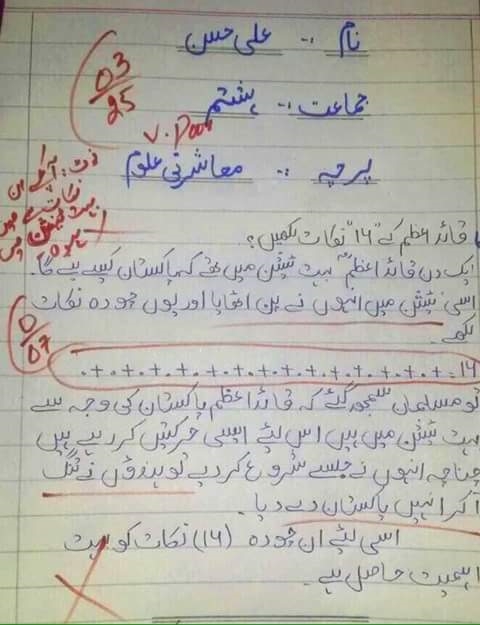 نام :۔ علی حسن
03/25
جماعت :۔ ہشتم
V. Poor
پرچہ :۔ معاشرتی علوم
نوٹ: آپ کے ان
نکات سے میں
بہت ٹینشن میں
ہوں
قائد اعظم کے "14" نکات لکھیں؟
ایک دن قائد اعظم بہت ٹینشن میں تھے کہ پاکستان کیسے بنے گا۔
اسی ٹینشن میں انہوں نے پین اٹھایا اور یوں چودہ نکات
لکھے۔
0/07
14 = .+.+.+.+.+.+.+.+.+.+.+.+.+.
تو مسلمان سمجھ گئے کہ قائد اعظم پاکستان کی وجہ سے
بہت ٹینشن میں ہیں اس لئے ایسی حرکتیں کر رہے ہیں
چناچہ انہوں نے جلسے شروع کر دیے تو ہندؤں نے تنگ
آکر انہیں پاکستان دے دیا۔
اسی لئے ان چودہ (14) نکات کو بہت
اہمیت حاصل ہے۔